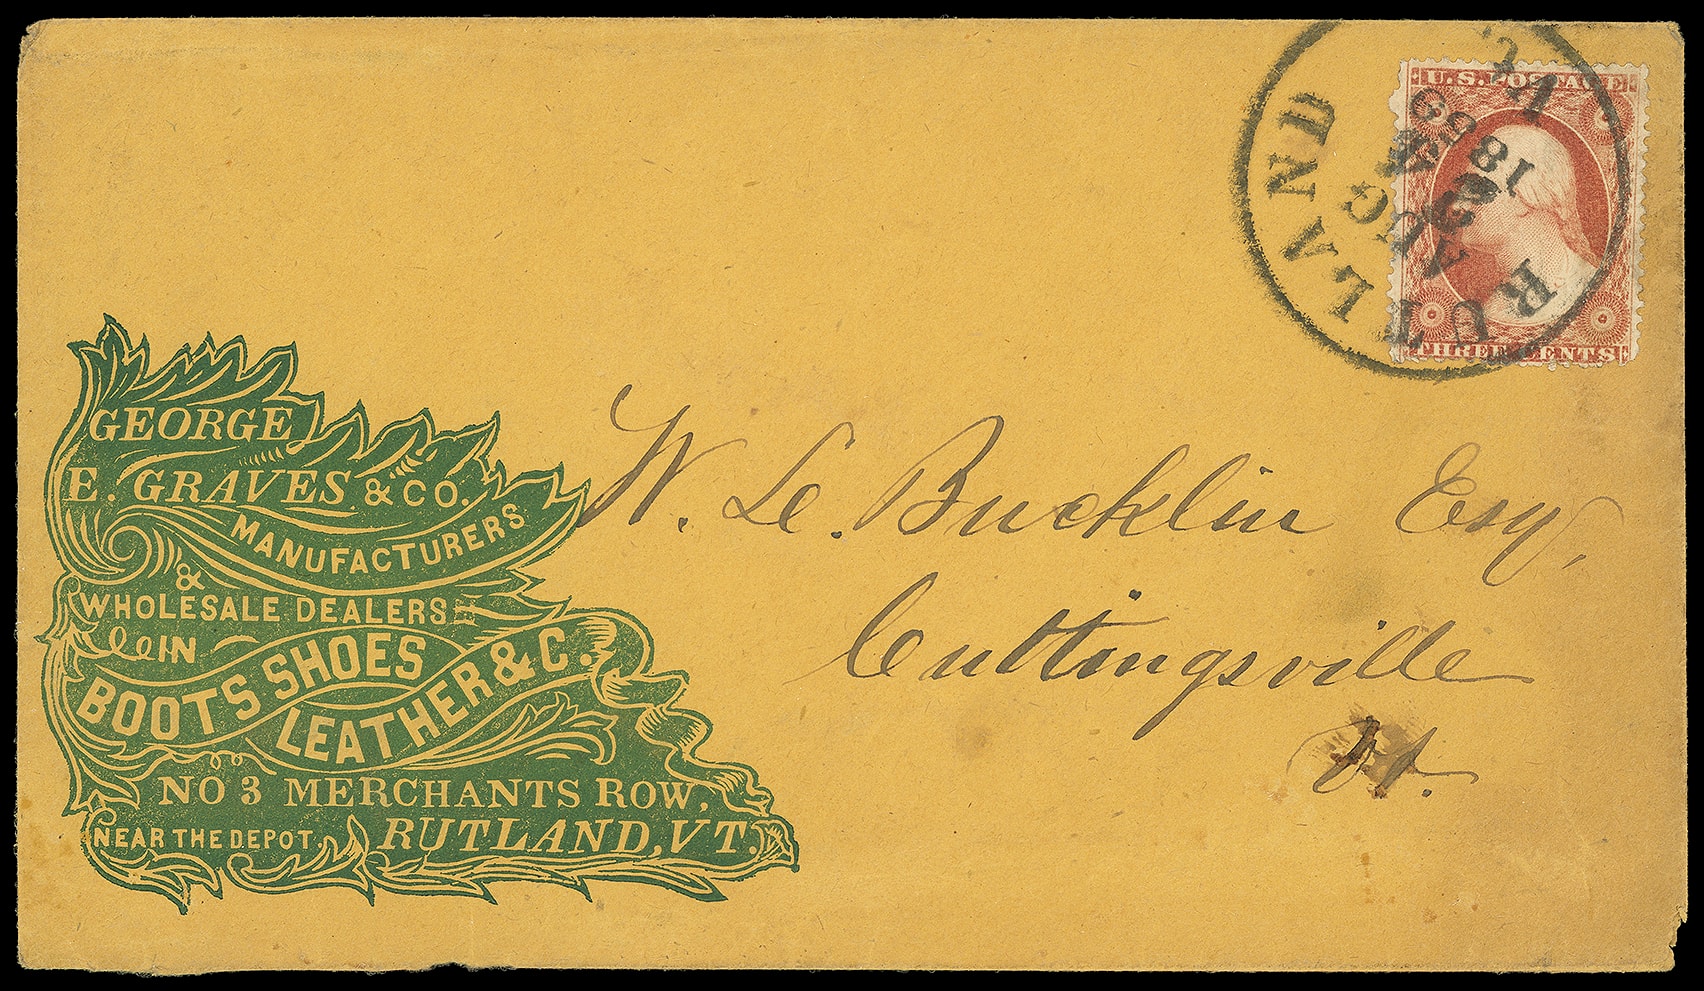 GEORGE
E. GRAVES & CO.
MANUFACTURERS
&
WHOLESALE DEALERS
IN
BOOTS SHOES
LEATHER & C.
NO 3 MERCHANTS ROW,
NEAR THE DEPOT. RUTLAND, VT.
RUTLAND VT.
AUG
24
U.S. POSTAGE
THREE CENTS
W. Le. Bucklin Esq,
Cuttingsville
Vt.